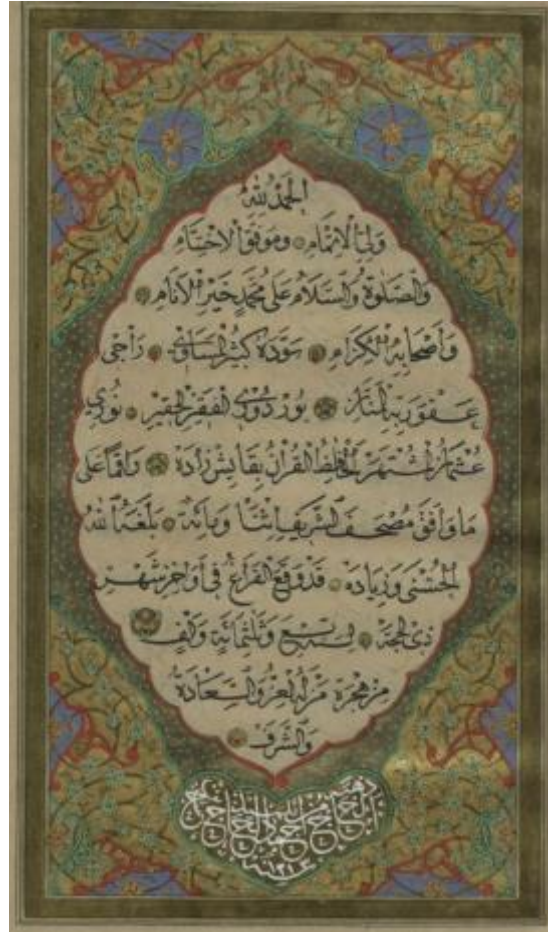 الحمد لله
ولي الانعام وموفق الاختتام
والصلوة والسلام على محمد خير الانام
واصحابه الكرام سوده كثير المساوي راجي
عفو ربه المنان بوردوري الفقير الحقير نوري
عثمان المشتهر لحافظ القران بقايش زاده واقعا على
ما وافق مصحف الشريف ومائة بلغه الله
الحسنى وزياده قد وقع الفراغ في اواخر شهر
ذي الحجة لسنة وثلثمائة والف
من هجرة من له العز والسعادة
والشرف
ذهبه الحاج احمد